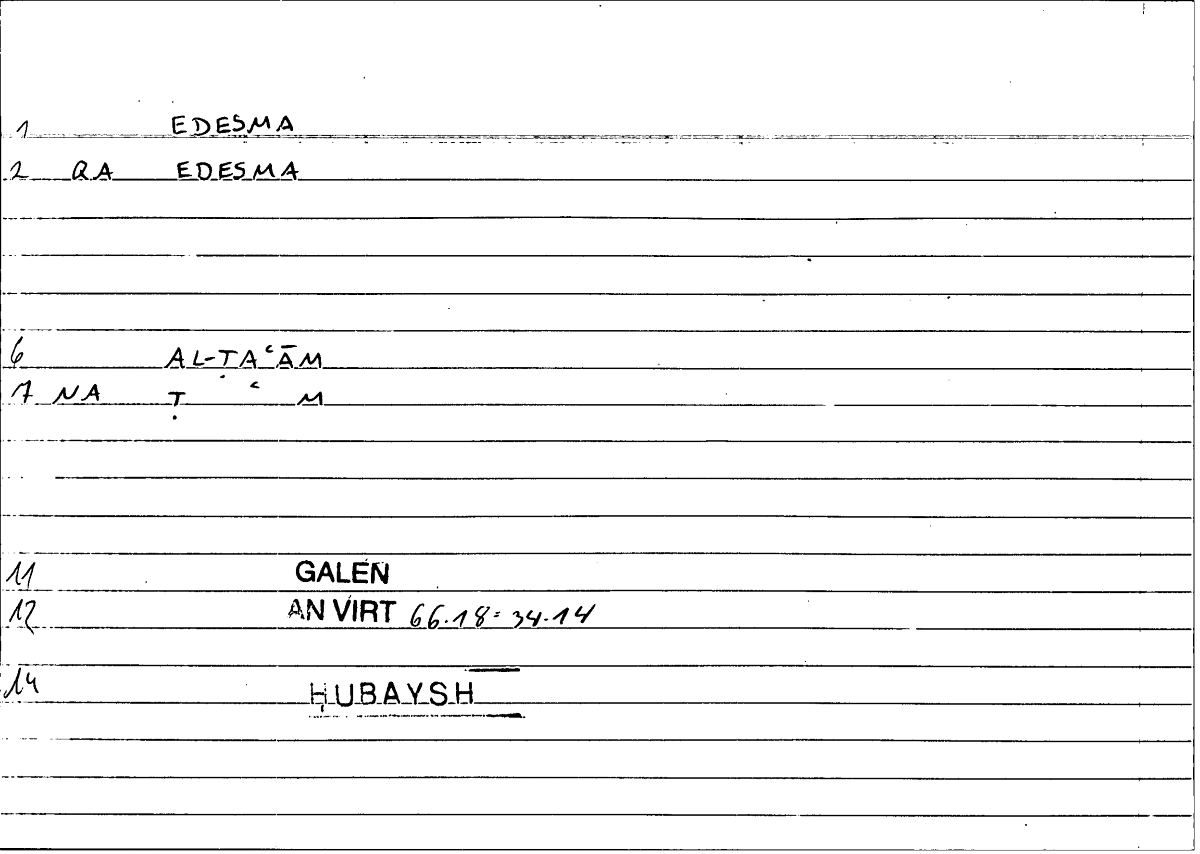 1 EDESMA
2 QA EDESMA
6 AL-ṬAʿĀM
7 NA Ṭ ʿ M
11 GALEN
12 AN VIRT 66.18 = 34.14
14 ḤUBAYSH